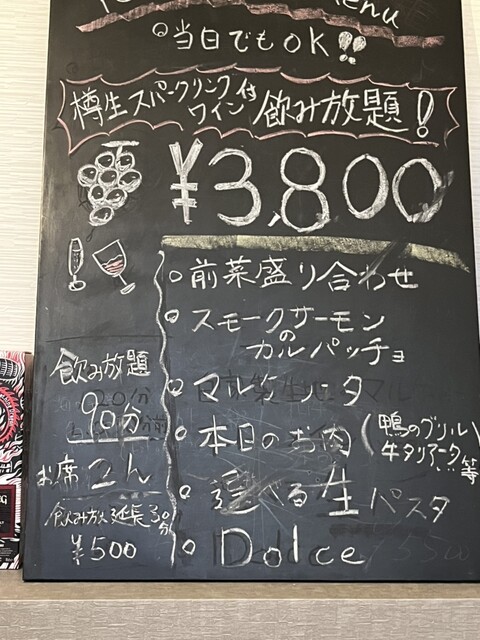 enu
◎当日でもOK!!
樽生スパークリングワイン付 飲み放題!
¥3,800
○前菜盛り合わせ
○スモークサーモンの
カルパッチョ
○マルゲリータ
○本日のお肉(鴨のグリル
牛タリアータ等)
○選べる生パスタ
○Dolce
飲み放題
90分
お席2h
飲み放延長30分
¥500